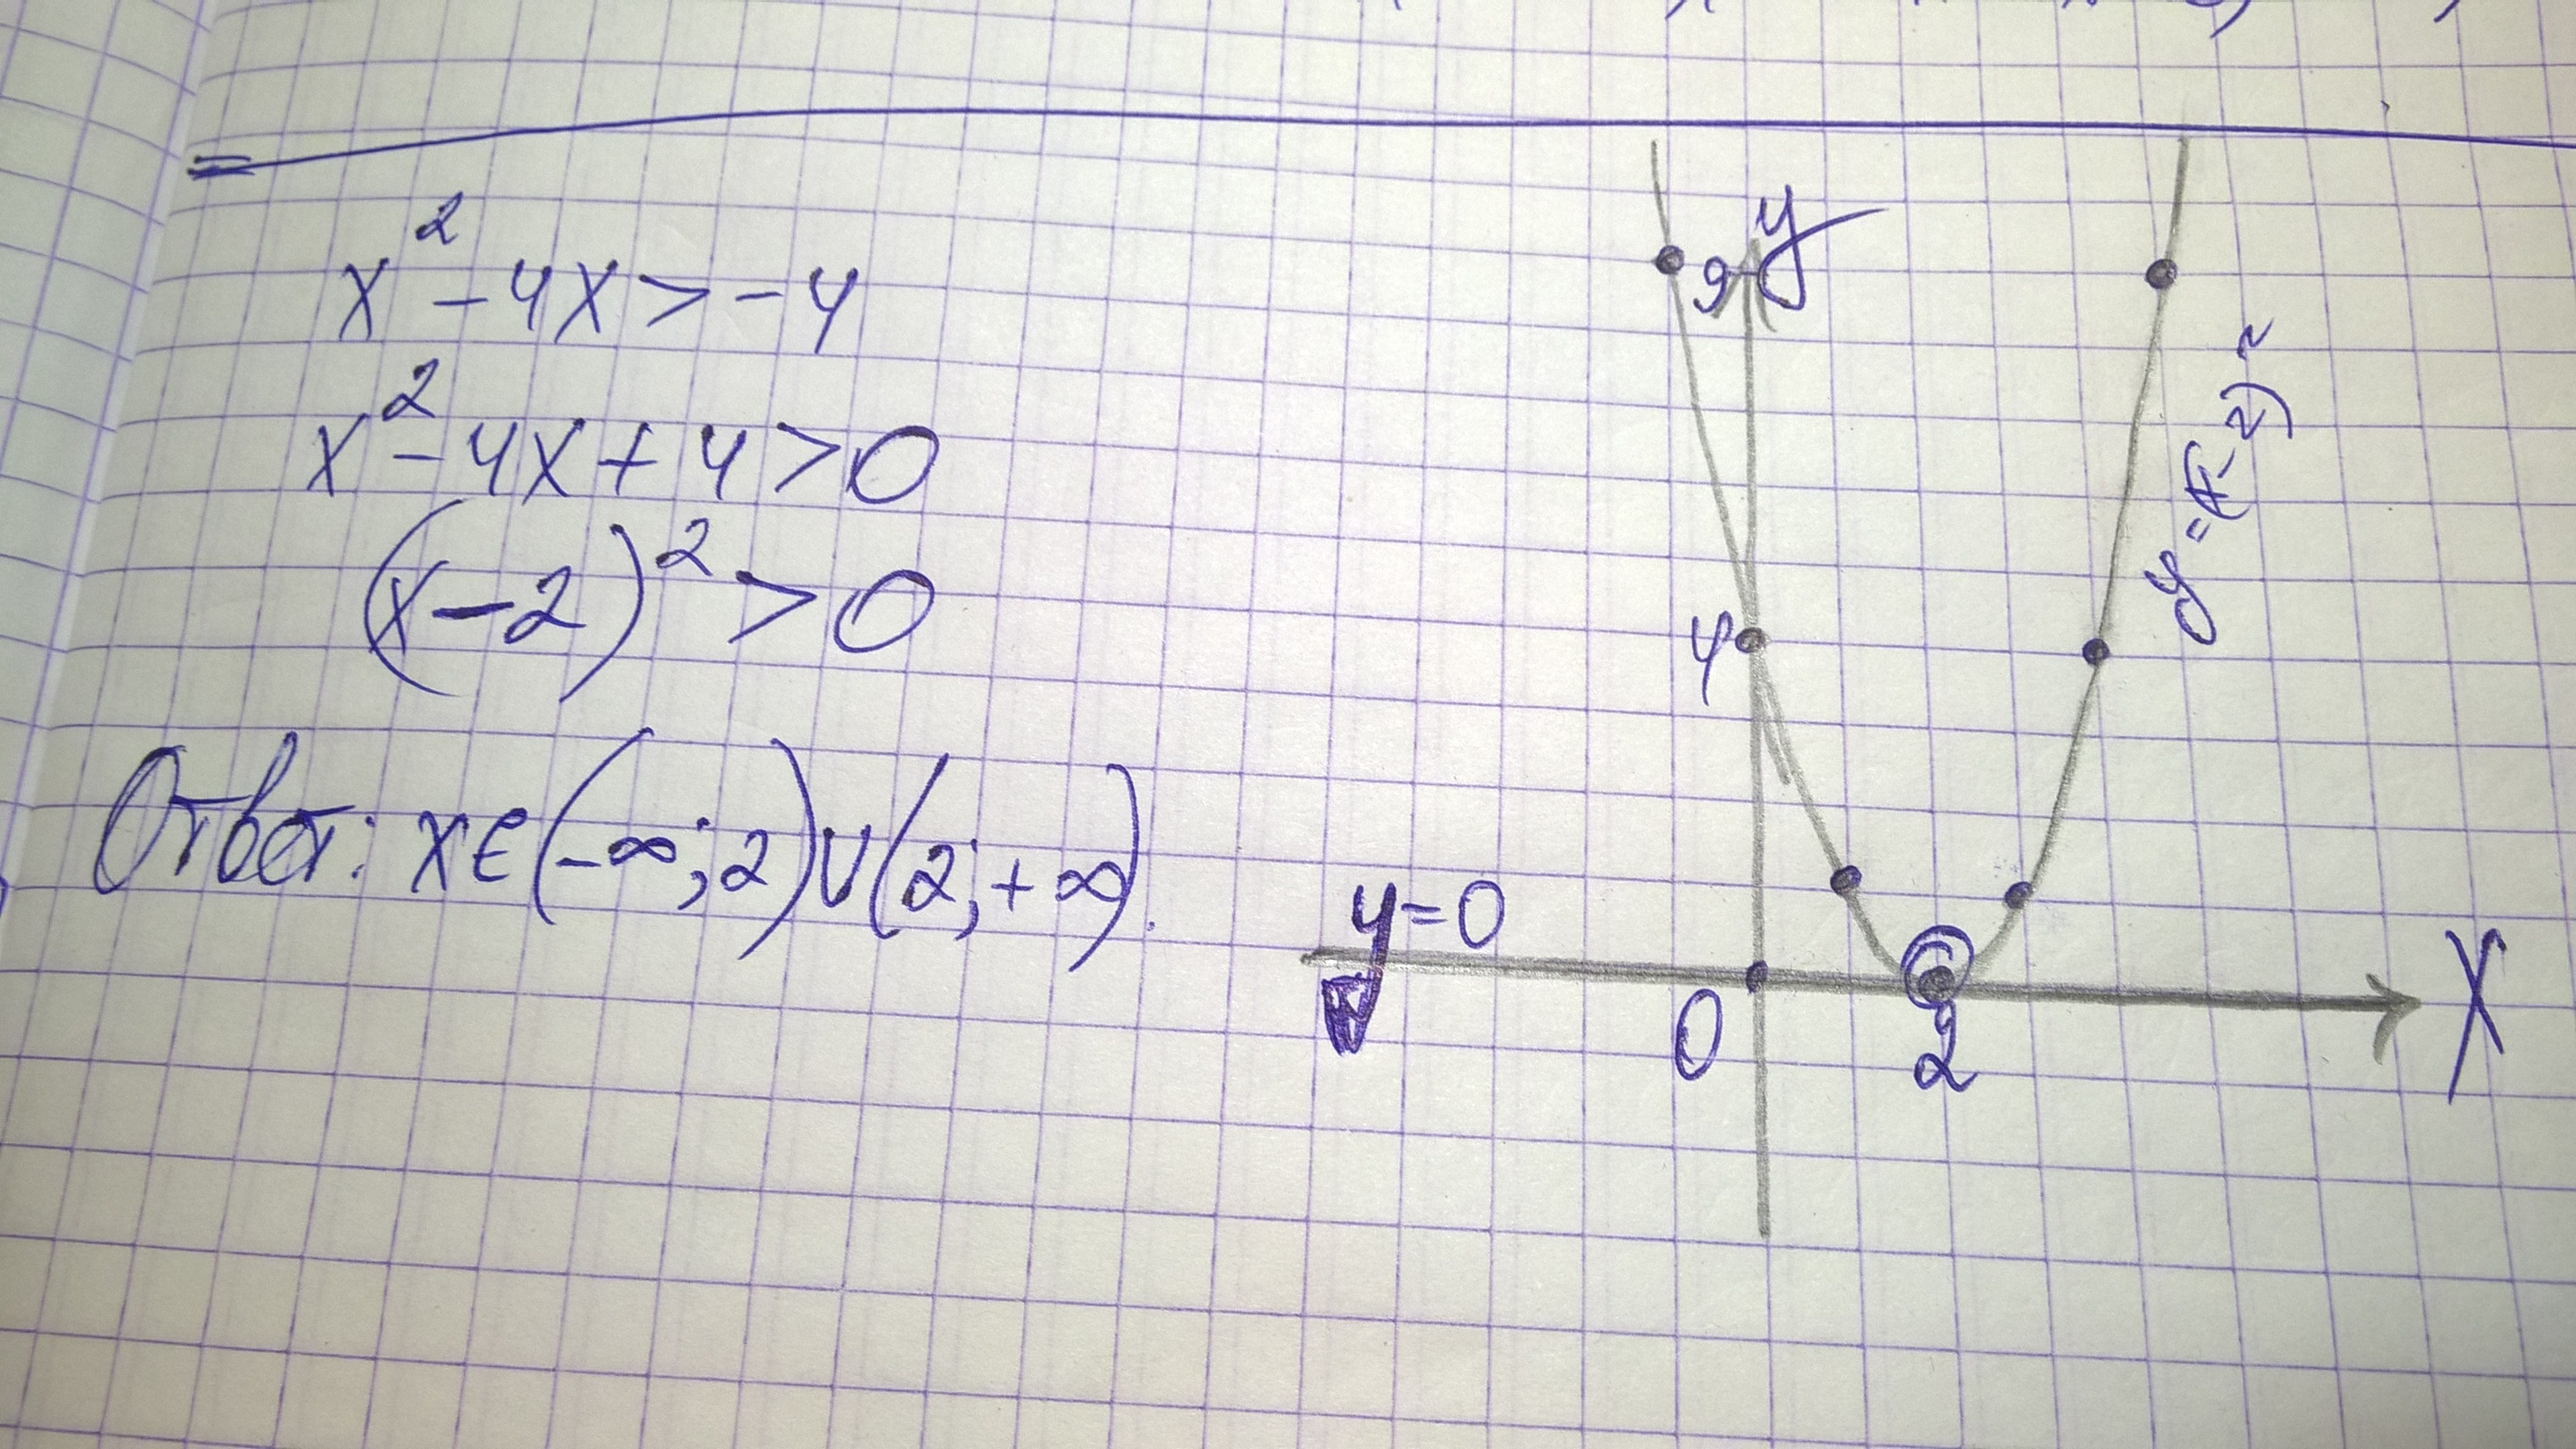 x²-4x>-4
x²-4x+4>0
(x-2)²>0
Ответ: x∈(-∞;2)∪(2;+∞).
y
9
4
y=(x-2)²
y=0
0
2
X